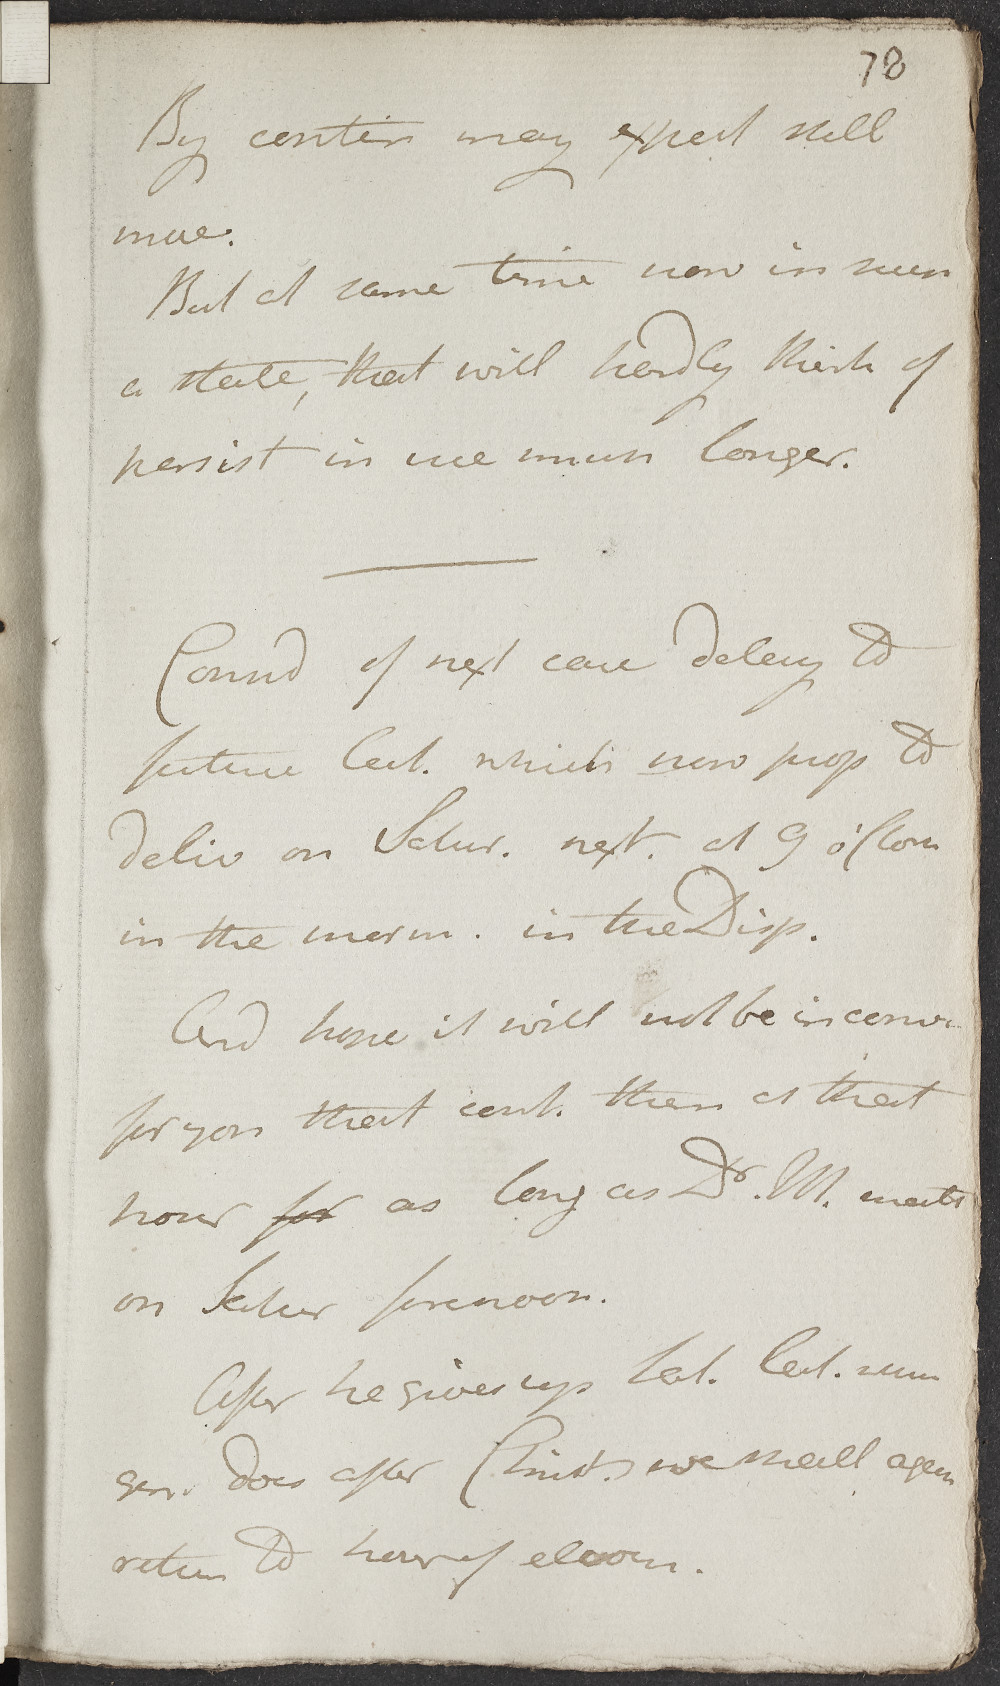 78
By contin may expect still
more.
But at same time now in such
a state, that will hardly think of
persist in use much longer.
Consid of next case delay to
future Lect. which now prop to
deliv on Satur. next. at 9 o'Clock
in the morn. in the Disp.
And hope it will not be inconv.
for you that com. then at that
hour for as long as Dr. M. meets
on Satur forenoon.
After he gives up Sat. Lect. such
gen. does after Christ. we shall again
return to hour of eleven.